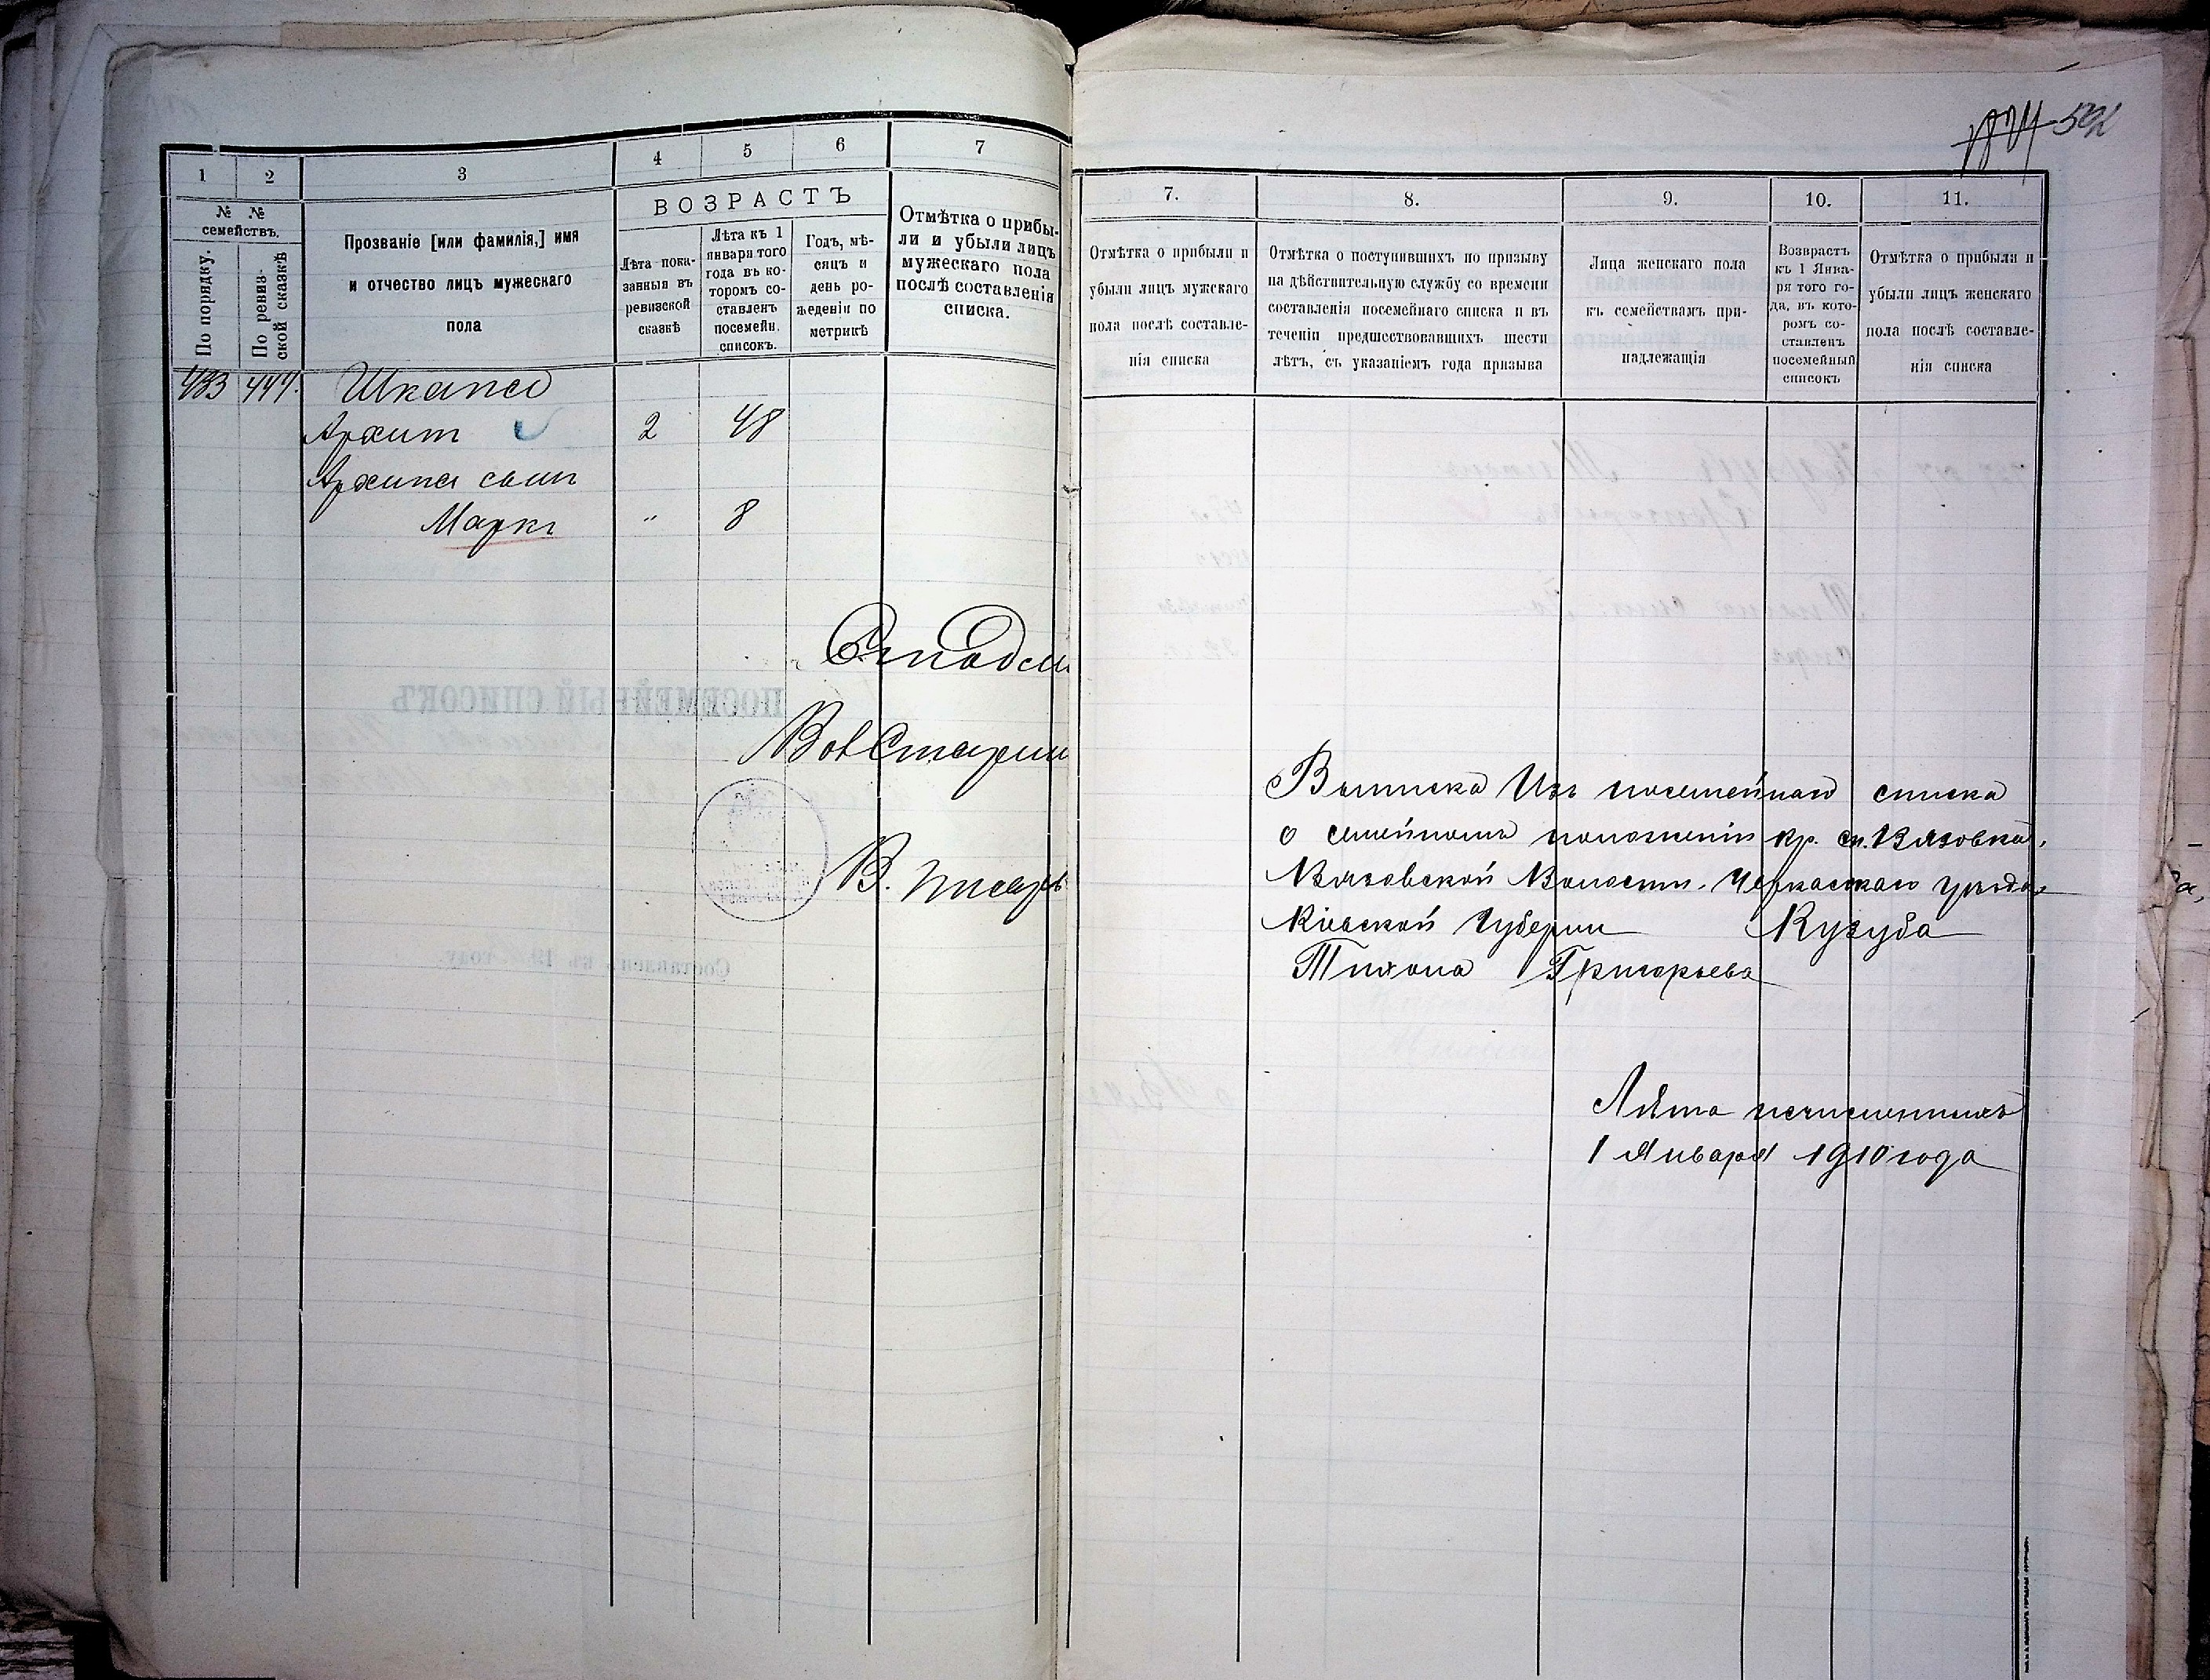 1 2 3 4 5 6 7
№ № семействъ.
По порядку.
По ревиз-
ской сказкѣ
Прозваніе [или фамилія,] имя
и отчество лицъ мужескаго
пола
ВОЗРАСТЪ
Лѣта пока-
занныя въ
ревизской
сказкѣ
Лѣта къ 1
января того
года въ ко-
торомъ со-
ставленъ
посемейн.
списокъ.
Годъ, мѣ-
сяцъ и
день ро-
жденія по
метрикѣ
Отмѣтка о прибы-
ли и убыли лицъ
мужескаго пола
послѣ составленія
списка.
483 447. Шкапа
Архип 2 48
Архипа сын
Маркъ " 8
ПОСЕМЕЙНЫЙ СПИСОКЪ
Старши
В. Писарь
7. 8. 9. 10. 11.
Отмѣтка о прибыли и
убыли лицъ мужскаго
пола послѣ составле-
нія списка
Отмѣтка о поступившихъ по призыву
на дѣйствительную службу со времени
составленія посемейнаго списка и въ
теченіи предшествовавшихъ шести
лѣтъ, съ указаніемъ года призыва
Лица женскаго пола
къ семействамъ при-
надлежащія
Возврастъ
къ 1 Янва-
ря того го-
да, въ кото-
ромъ со-
ставленъ
посемейный
списокъ
Отмѣтка о прибыли и
убыли лицъ женскаго
пола послѣ составле-
нія списка
Выписка Изъ посемейнаго списка
о семейномъ положеніи кр. с. Вязовка,
Вязовской Волости, Черкаскаго уезда,
Кіевской Губерніи Кузуба
Тихона Григорьева
Лѣта исчисленныхъ
1 Января 1910 года